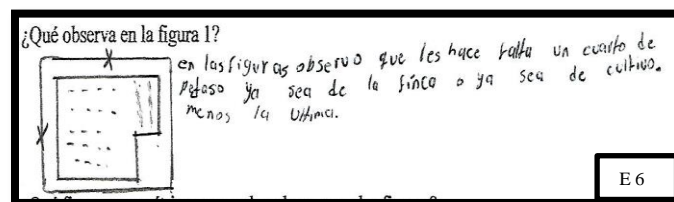 ¿Qué observa en la figura 1?
en las figuras observo que les hace falta un cuarto de
pedaso ya sea de la finca o ya sea de cultivo.
menos la ultima.
E 6